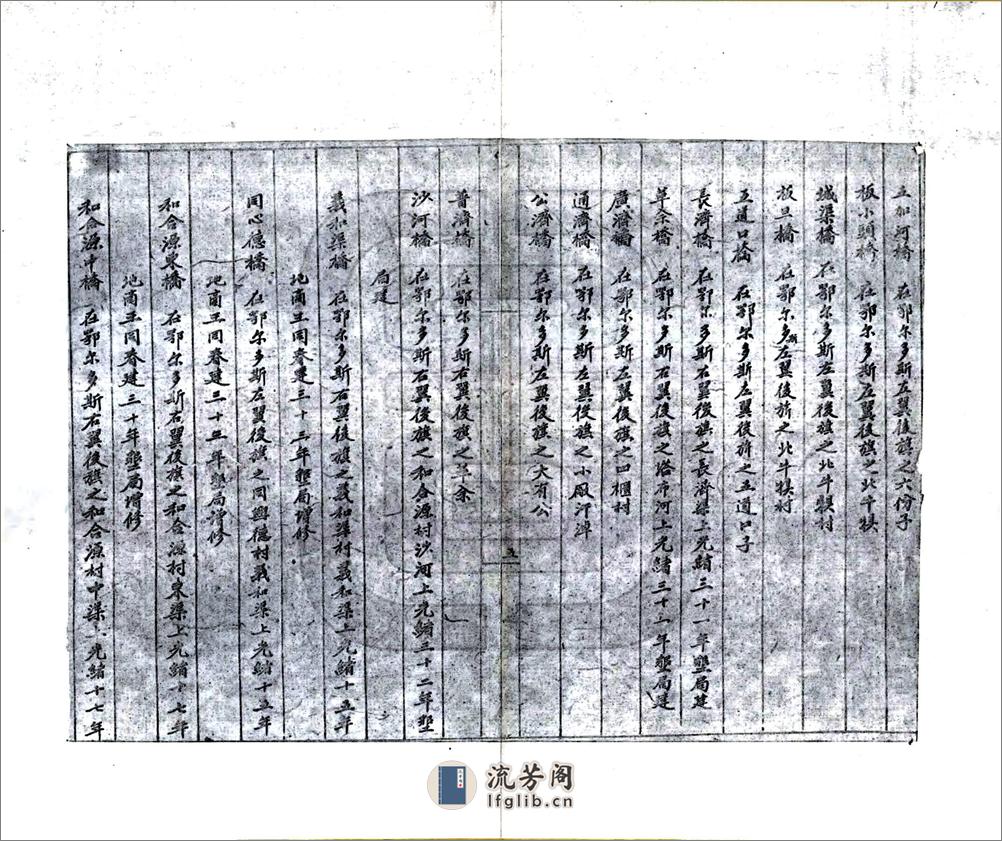 五加河橋 在鄂尔多斯左翼後旗之六份子
板小頭橋 在鄂尔多斯左翼後旗之北牛犋
城渠橋 在鄂尔多斯左翼後旗之北牛犋村
板旦橋 在鄂尔多斯左翼後旂之北牛犋村
五道口橋 在鄂尔多斯左翼後旂之五道口子
長濟橋 在鄂尔多斯右翼後旗之長濟渠上光緒三十一年墾局建
羊余橋 在鄂尔多斯右翼後旗之塔布河上光緒三十一年墾局建
廣濟橋 在鄂尔多斯左翼後旗之四櫃村
通濟橋 在鄂尔多斯左翼後旗之小廠汗淖
公濟橋 在鄂尔多斯左翼後旗之大有公
五
普濟橋 在鄂尔多斯右翼後旗之羊余
沙河橋 在鄂尔多斯右翼後旗之和合源村沙河上光緒三十二年墾
局建
義和渠橋 在鄂尔多斯右翼後旗之義和渠村義和渠上光緒十五年
地商王同春建三十三年墾局增修
同心德橋 在鄂尔多斯左翼後旗之同興德村義和渠上光緒十五年
地商王同春建三十三年墾局增修
和合源東橋 在鄂尔多斯右翼後旗之和合源村東渠上光緒十七年
地商王同春建三十年墾局增修
和合源中橋 在鄂尔多斯右翼後旗之和合源村中渠上光緒十七年
流芳阁
lfglib.cn